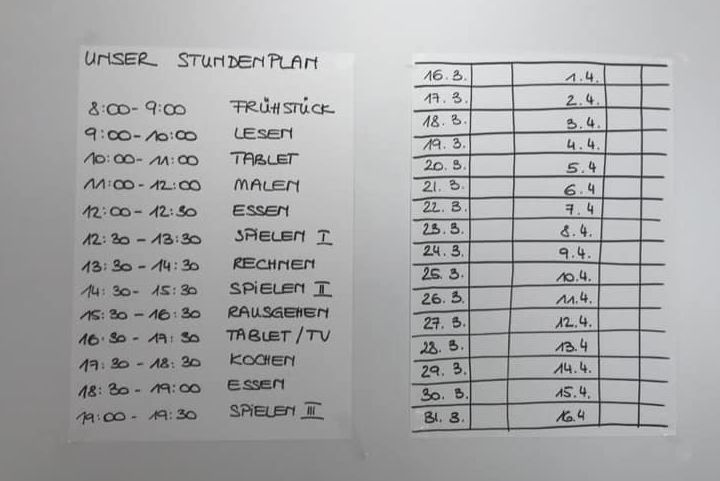 UNSER STUNDENPLAN
8:00-9:00 FRÜHSTÜCK
9:00-10:00 LESEN
10:00-11:00 TABLET
11:00-12:00 MALEN
12:00-12:30 ESSEN
12:30-13:30 SPIELEN I
13:30-14:30 RECHNEN
14:30-15:30 SPIELEN II
15:30-16:30 RAUSGEHEN
16:30-17:30 TABLET/TV
17:30-18:30 KOCHEN
18:30-19:00 ESSEN
19:00-19:30 SPIELEN III
16.3. 1.4.
17.3. 2.4.
18.3. 3.4.
19.3. 4.4.
20.3. 5.4
21.3. 6.4
22.3. 7.4
23.3. 8.4.
24.3. 9.4.
25.3. 10.4.
26.3. 11.4.
27.3. 12.4.
28.3. 13.4
29.3. 14.4.
30.3. 15.4.
31.3. 16.4